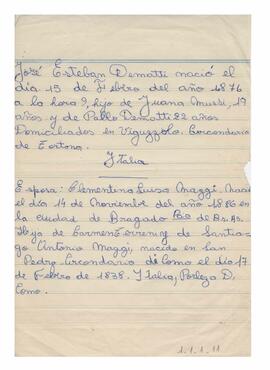 José Esteban Dematti nació el
día 15 de Febro del año 1876
a la hora ?, hijo de Juana Mussi, 19
años y de Pablo Dematti 22 años
Domiciliados en Viguzzolo. Corcondario
de Tortona.
Italia
Esposa: Clementina Luisa Maggi. Nació
el día 14 de Noviembre del año 1886 en
la ciudad de Bragado Pcia de Bs. As.
Hija de Carmen y de Santia-
go Antonio Maggi, nacido en San
Pedro. Circondario di Como el día 17
de Febro de 1838. Italia, D.
Como.
1.1.1.11